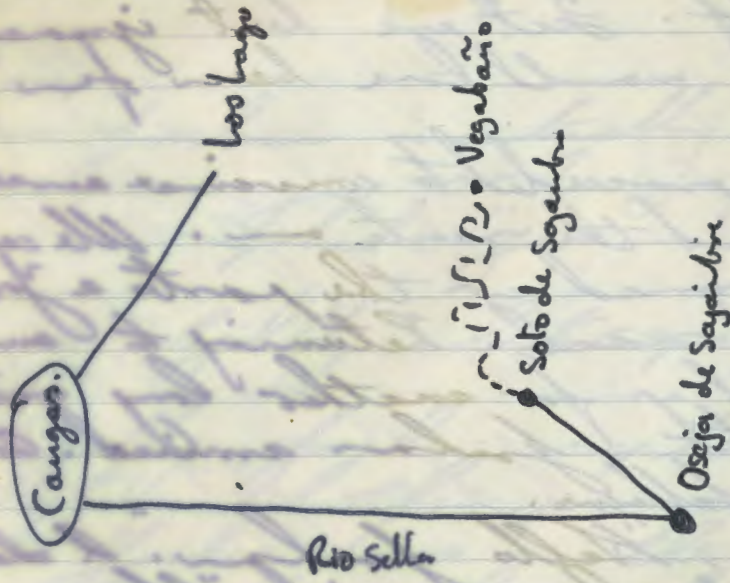 Cangas.
Los Lago
Vegabaño
Soto de Sajambre
Oseja de Sajambre
Rio Sella